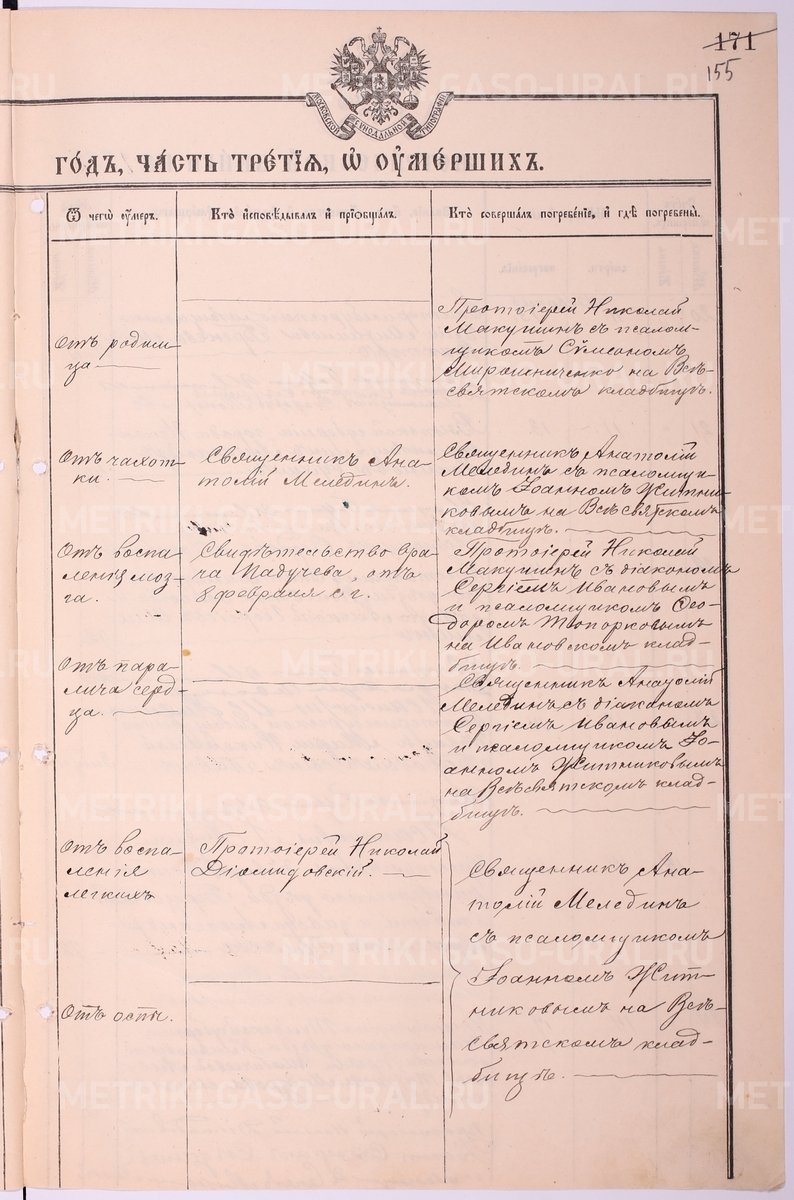 171
155
МОСКОВСКОЙ СѴНОДАЛЬНОЙ ТИПОГРАФІИ
ГО́ДЪ, ЧА́СТЬ ТРЕ́ТІЯ, Ѡ҆ ОУ҆МЕ́РШИХЪ.
Ѿ чегѡ̀ оу҆́меръ.
Кто̀ и҆сповѣ́дывалъ и҆ прїѻбща́лъ.
Кто̀ соверша́лъ погребе́нїе, и҆ гдѣ̀ погребены̀.
Отъ родим-
ца
Протоіерей Николай
Макушинъ съ псалом-
щикомъ Сѵмеономъ
Мирошниченко на Всѣ-
святскомъ кладбищѣ.
Отъ чахот-
ки.
Священникъ Ана-
толій Мелединъ.
Священникъ Анатолій
Мелединъ съ псаломщи-
комъ Іоанномъ Житни-
ковымъ на Всѣсвятскомъ
кладбищѣ.
Отъ воспа-
ленія моз-
га.
Свидѣтельство вра-
ча Падучева, отъ
8 февраля с. г.
Протоіерей Николай
Макушинъ съ діакономъ
Сергіемъ Ивановымъ
и псаломщикомъ Ѳео-
доромъ Топорковымъ
на Ивановскомъ клад-
бищѣ.
Отъ пара-
лича серд-
ца.
Священникъ Анатолій
Мелединъ съ діакономъ
Сергіемъ Ивановымъ
и псаломщикомъ Іо-
анномъ Житниковымъ
на Всѣсвятскомъ клад-
бищѣ.
Отъ воспа-
ленія
легкихъ
Протоіерей Николай
Діомидовскій.
Отъ оспы.
Священникъ Ана-
толій Мелединъ
съ псаломщикомъ
Іоанномъ Жит-
никовымъ на Всѣ-
святскомъ клад-
бищѣ.
METRIKI.GASO-URAL.RU